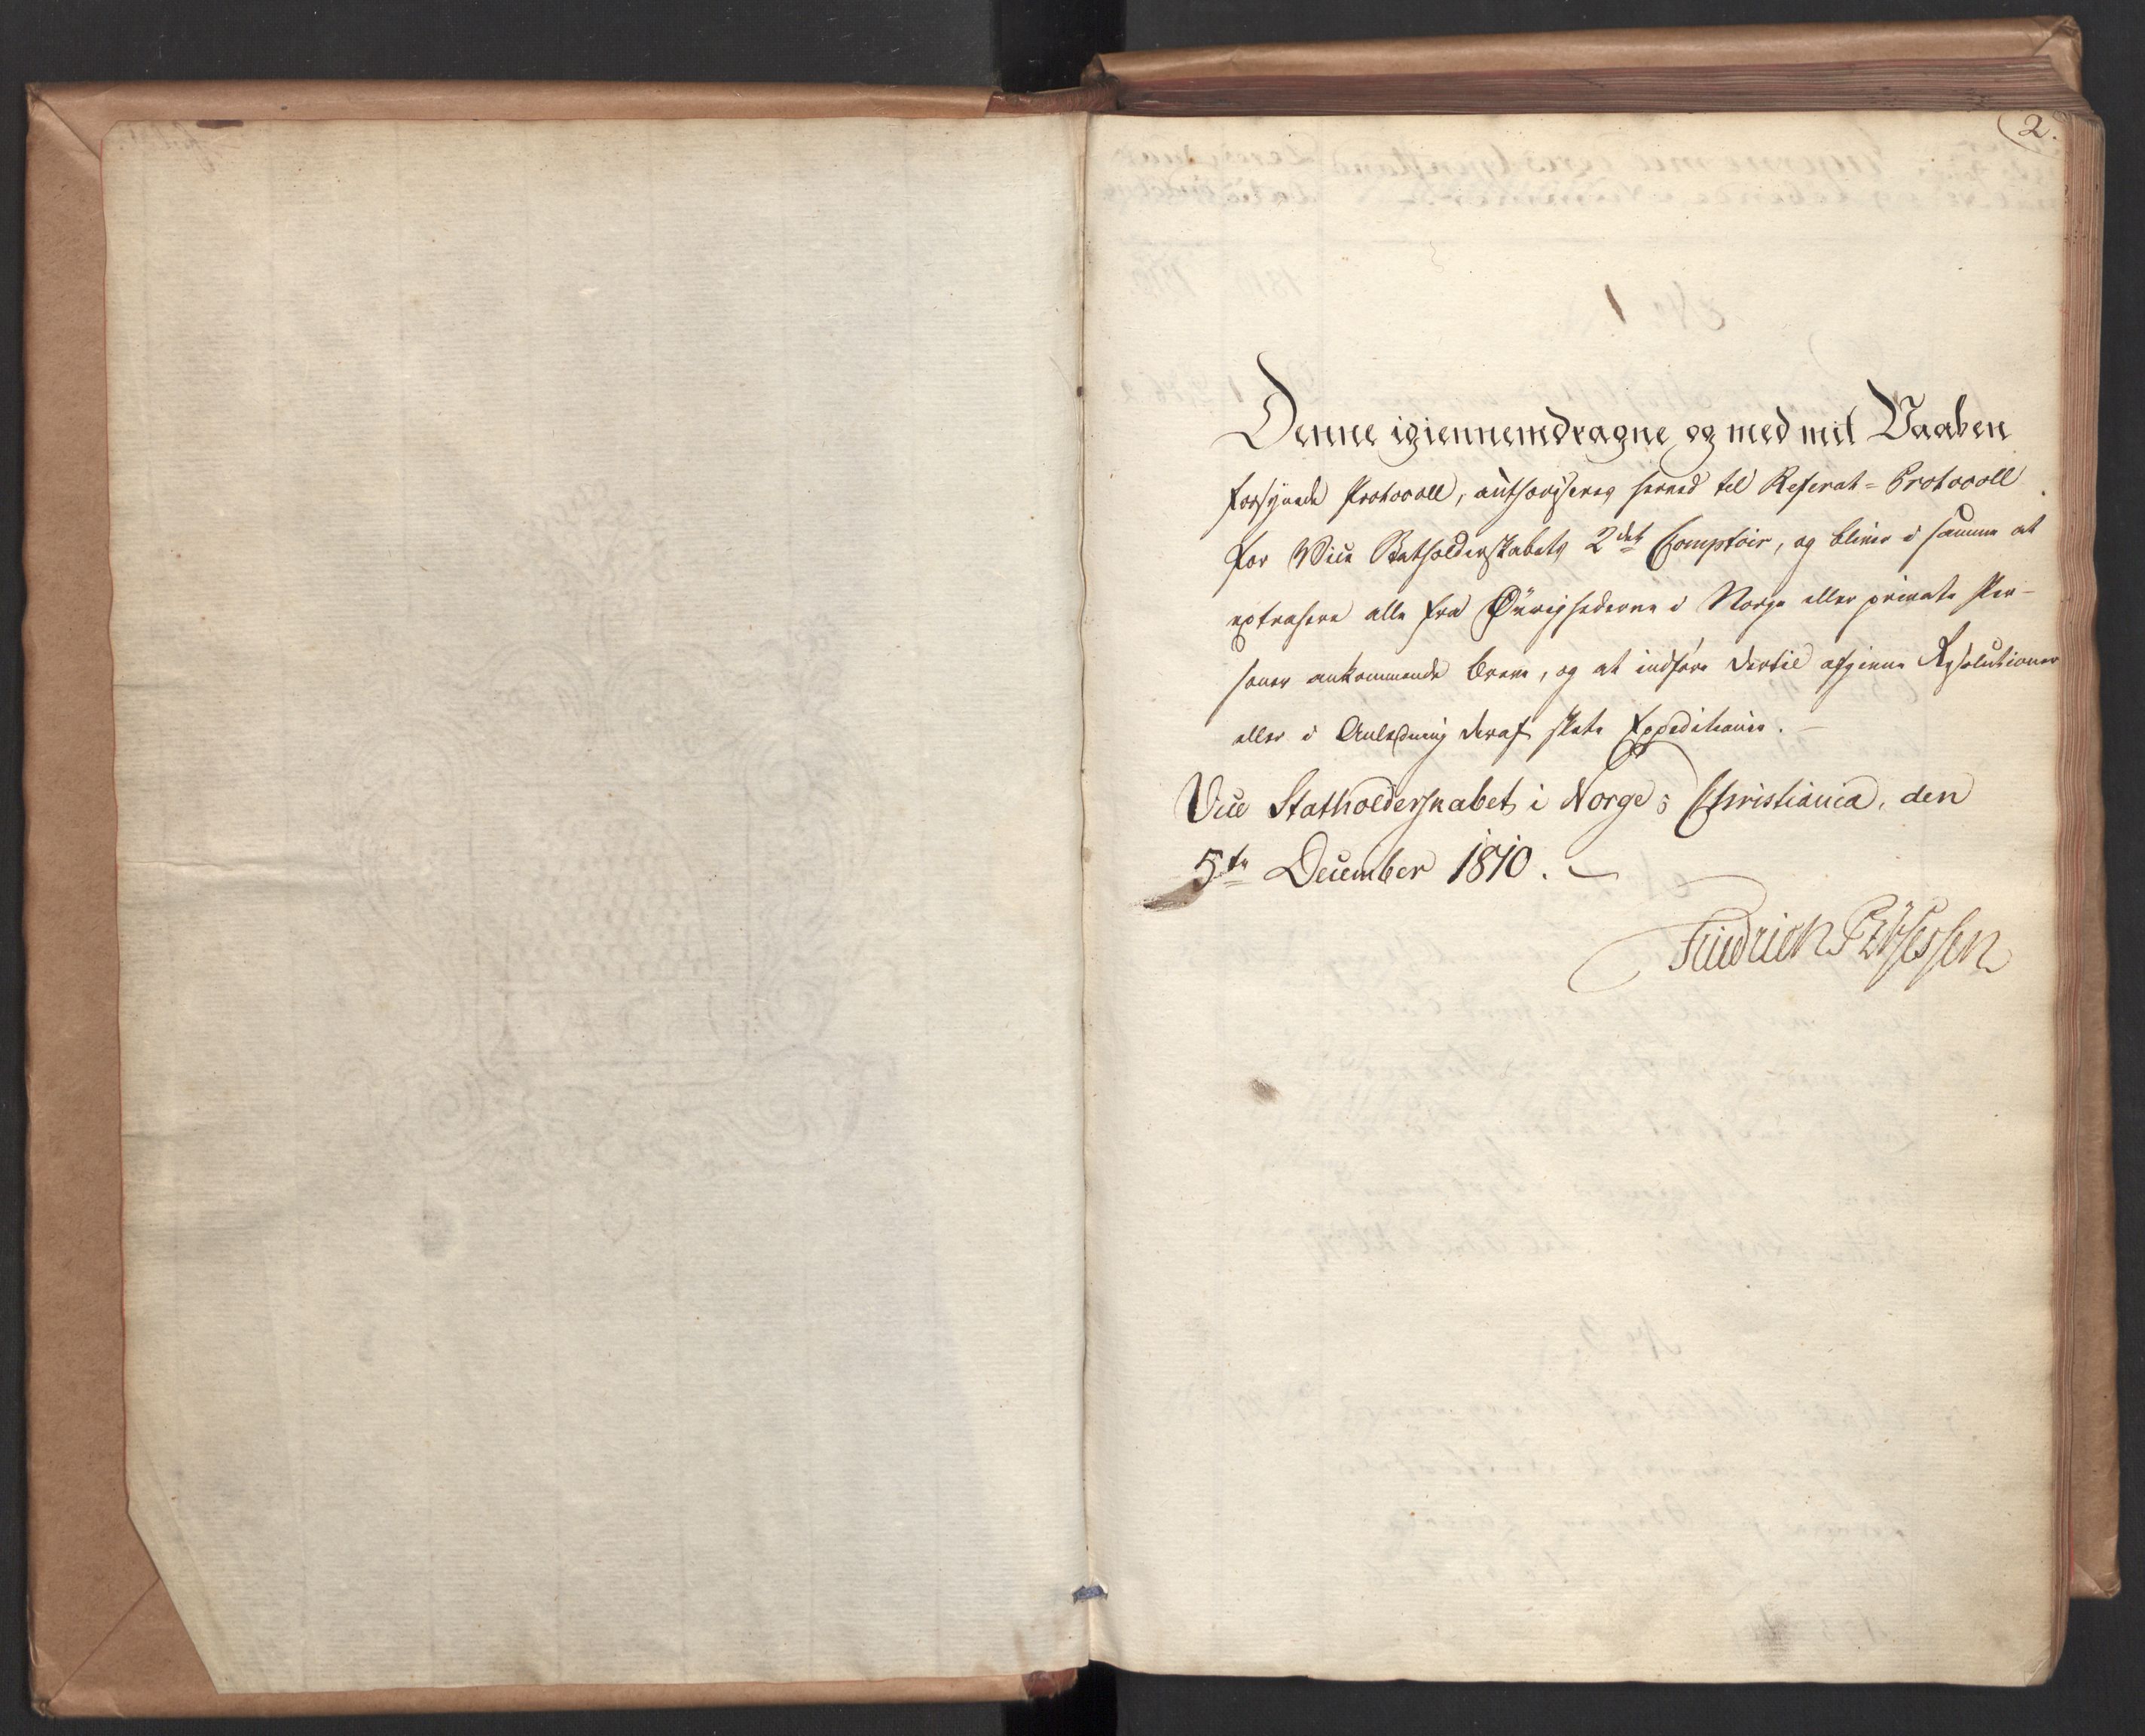 2.
Denne igiennemdragne og med mit Vaaben
forsynede Protocoll, authoriseres herved til Referat-Protocoll
for Vice Statholderskabets 2det Comptoir, og bliver i samme at
extrahere alle fra Øvrighederne i Norge eller private Per-
soner ankommende Breve, og at indføre dertil afgivne Resolutioner
eller i Anledning deraf skete Expeditioner. –
Vice Statholderskabet i Norge, Christiania, den
5te December 1810. –
Friedrich PzHessen